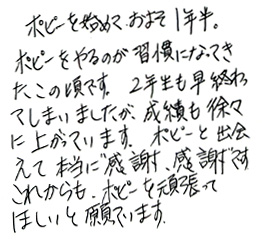 ポピーを始めて、およそ1年半。
ポピーをやるのが習慣になってき
た、この頃です。 2年生も早終わっ
てしまいましたが、成績も徐々
に上がっています。 ポピーと出会
えて本当に"感謝、感謝"です
これからも、ポピーを頑張って
ほしいと願っています。